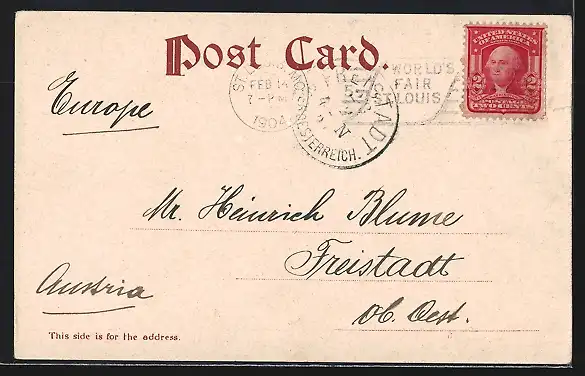 Post Card.
UNITED STATES
OF AMERICA
2 2
POSTAGE
TWO CENTS
ST. LOUIS, MO.
FEB 14
7-PM
1904
WORLD'S
FAIR
ST LOUIS
FREISTADT
OBEROESTERREICH.
Europe
Mr. Heinrich Blume
Freistadt
Ob. Oest.
Austria
This side is for the address.